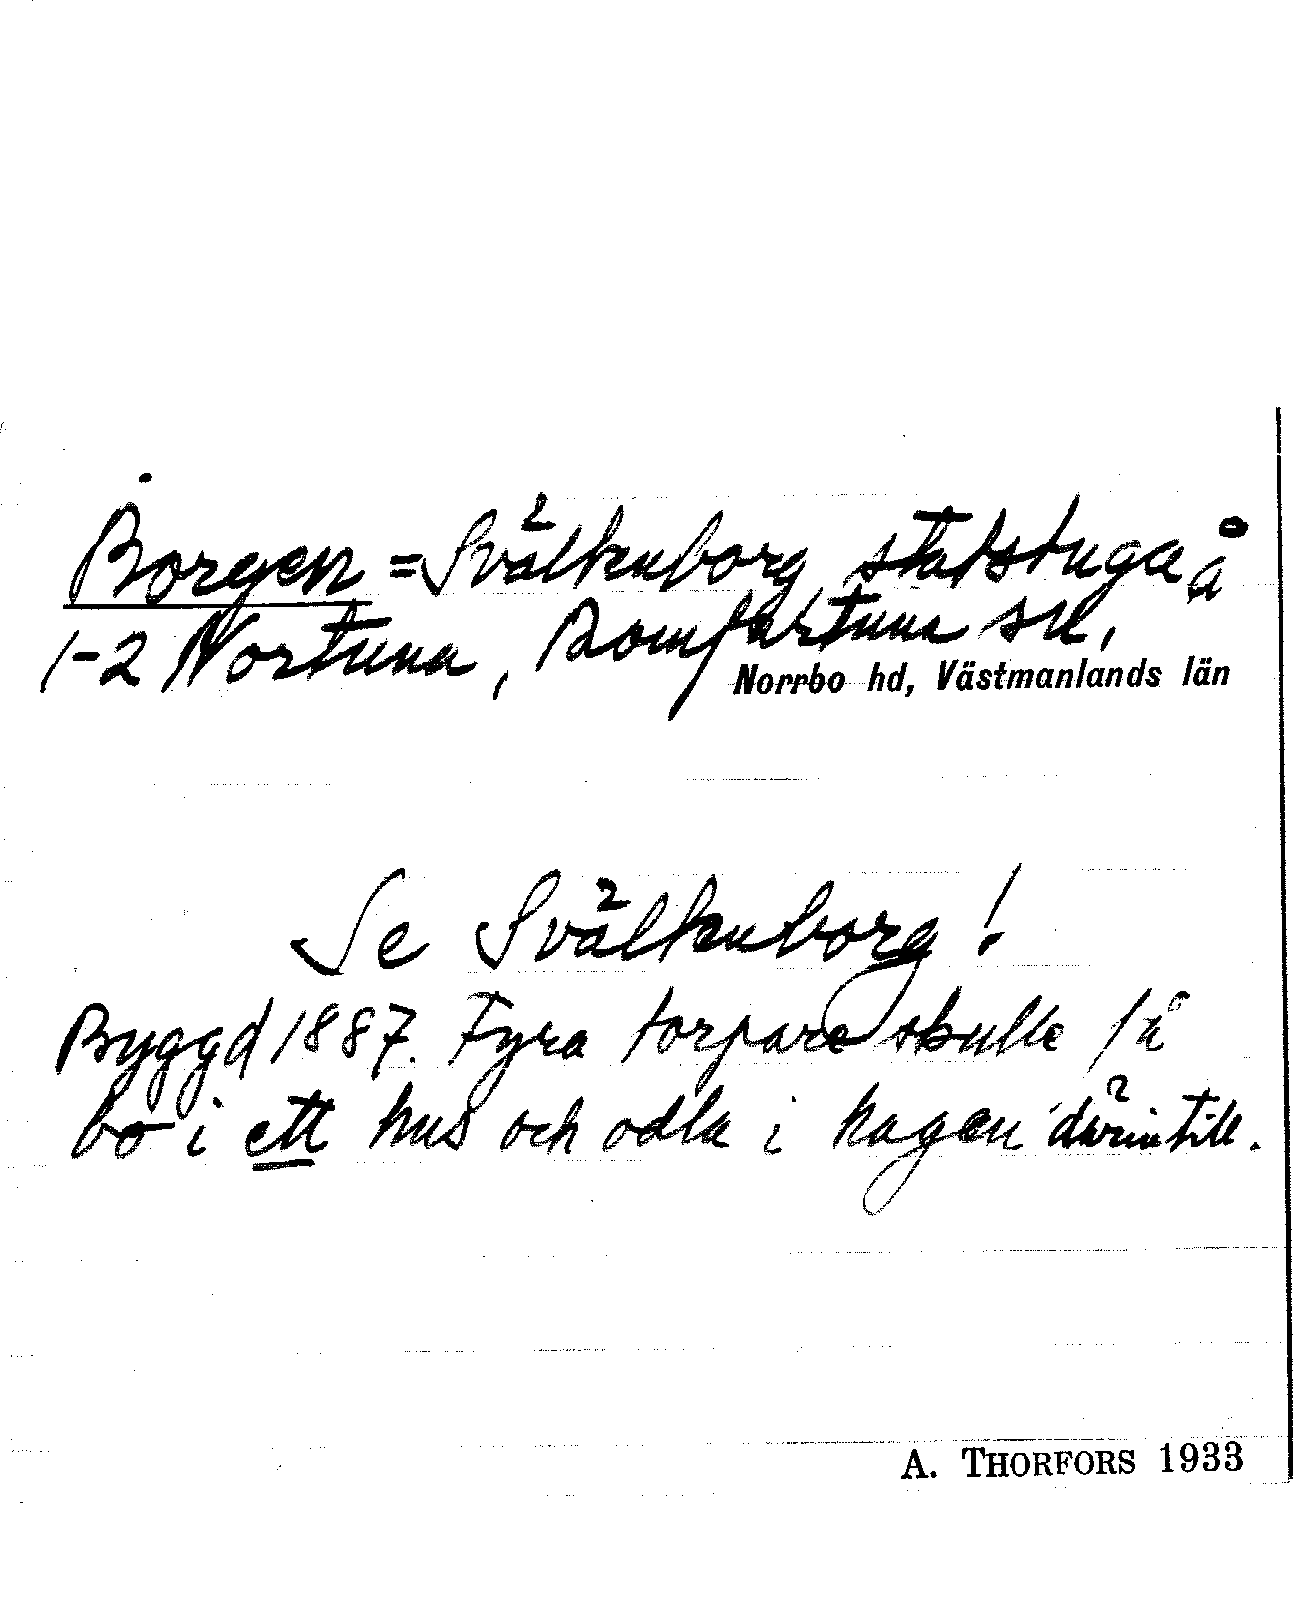 Borgen = Svältenborg statstuga å
1-2 Nortuna, Romfartuna sn,
Norrbo hd, Västmanlands län
Se Svältenborg!
Byggd 1887. Fyra torpare skulle få
bo i ett hus och odla i hagen därintill.
A. THORFORS 1933